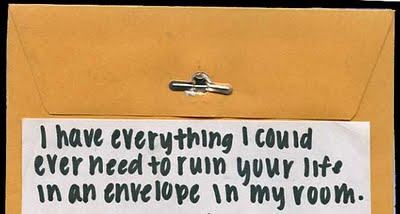 I have everything I could
ever need to ruin your life
in an envelope in my room.